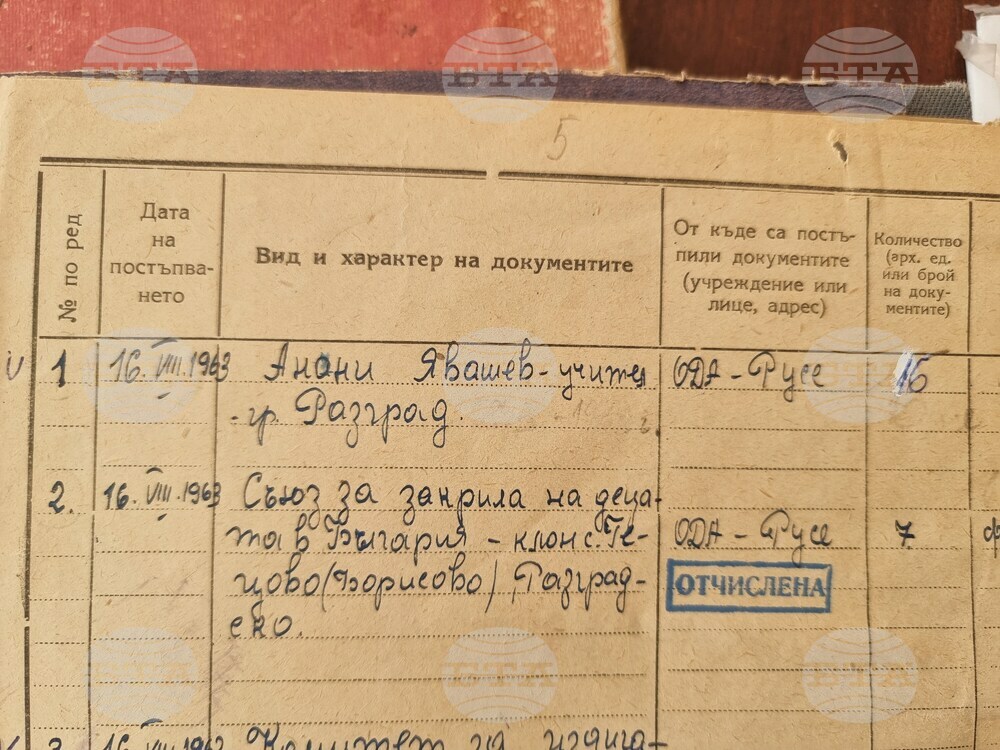 БТА БТА БТА
5
№ по ред
Дата
на
постъпва-
нето
Вид и характер на документите
От къде са постъ-
пили документите
(учреждение или
лице, адрес)
Количество
(арх. ед.
или брой
на доку-
ментите)
1 16.VIII.1963 Анани Явашев - учител ОДА - Русе 16
гр. Разград.
2. 16.VIII.1963 Съюз за закрила на деца-
та в България - клон с. Ге- ОДА - Русе 7
цово (Борисово) Разград- ОТЧИСЛЕНА
ско.
БТА БТА БТА
3. 16.VIII.1963 Комитет за издига-